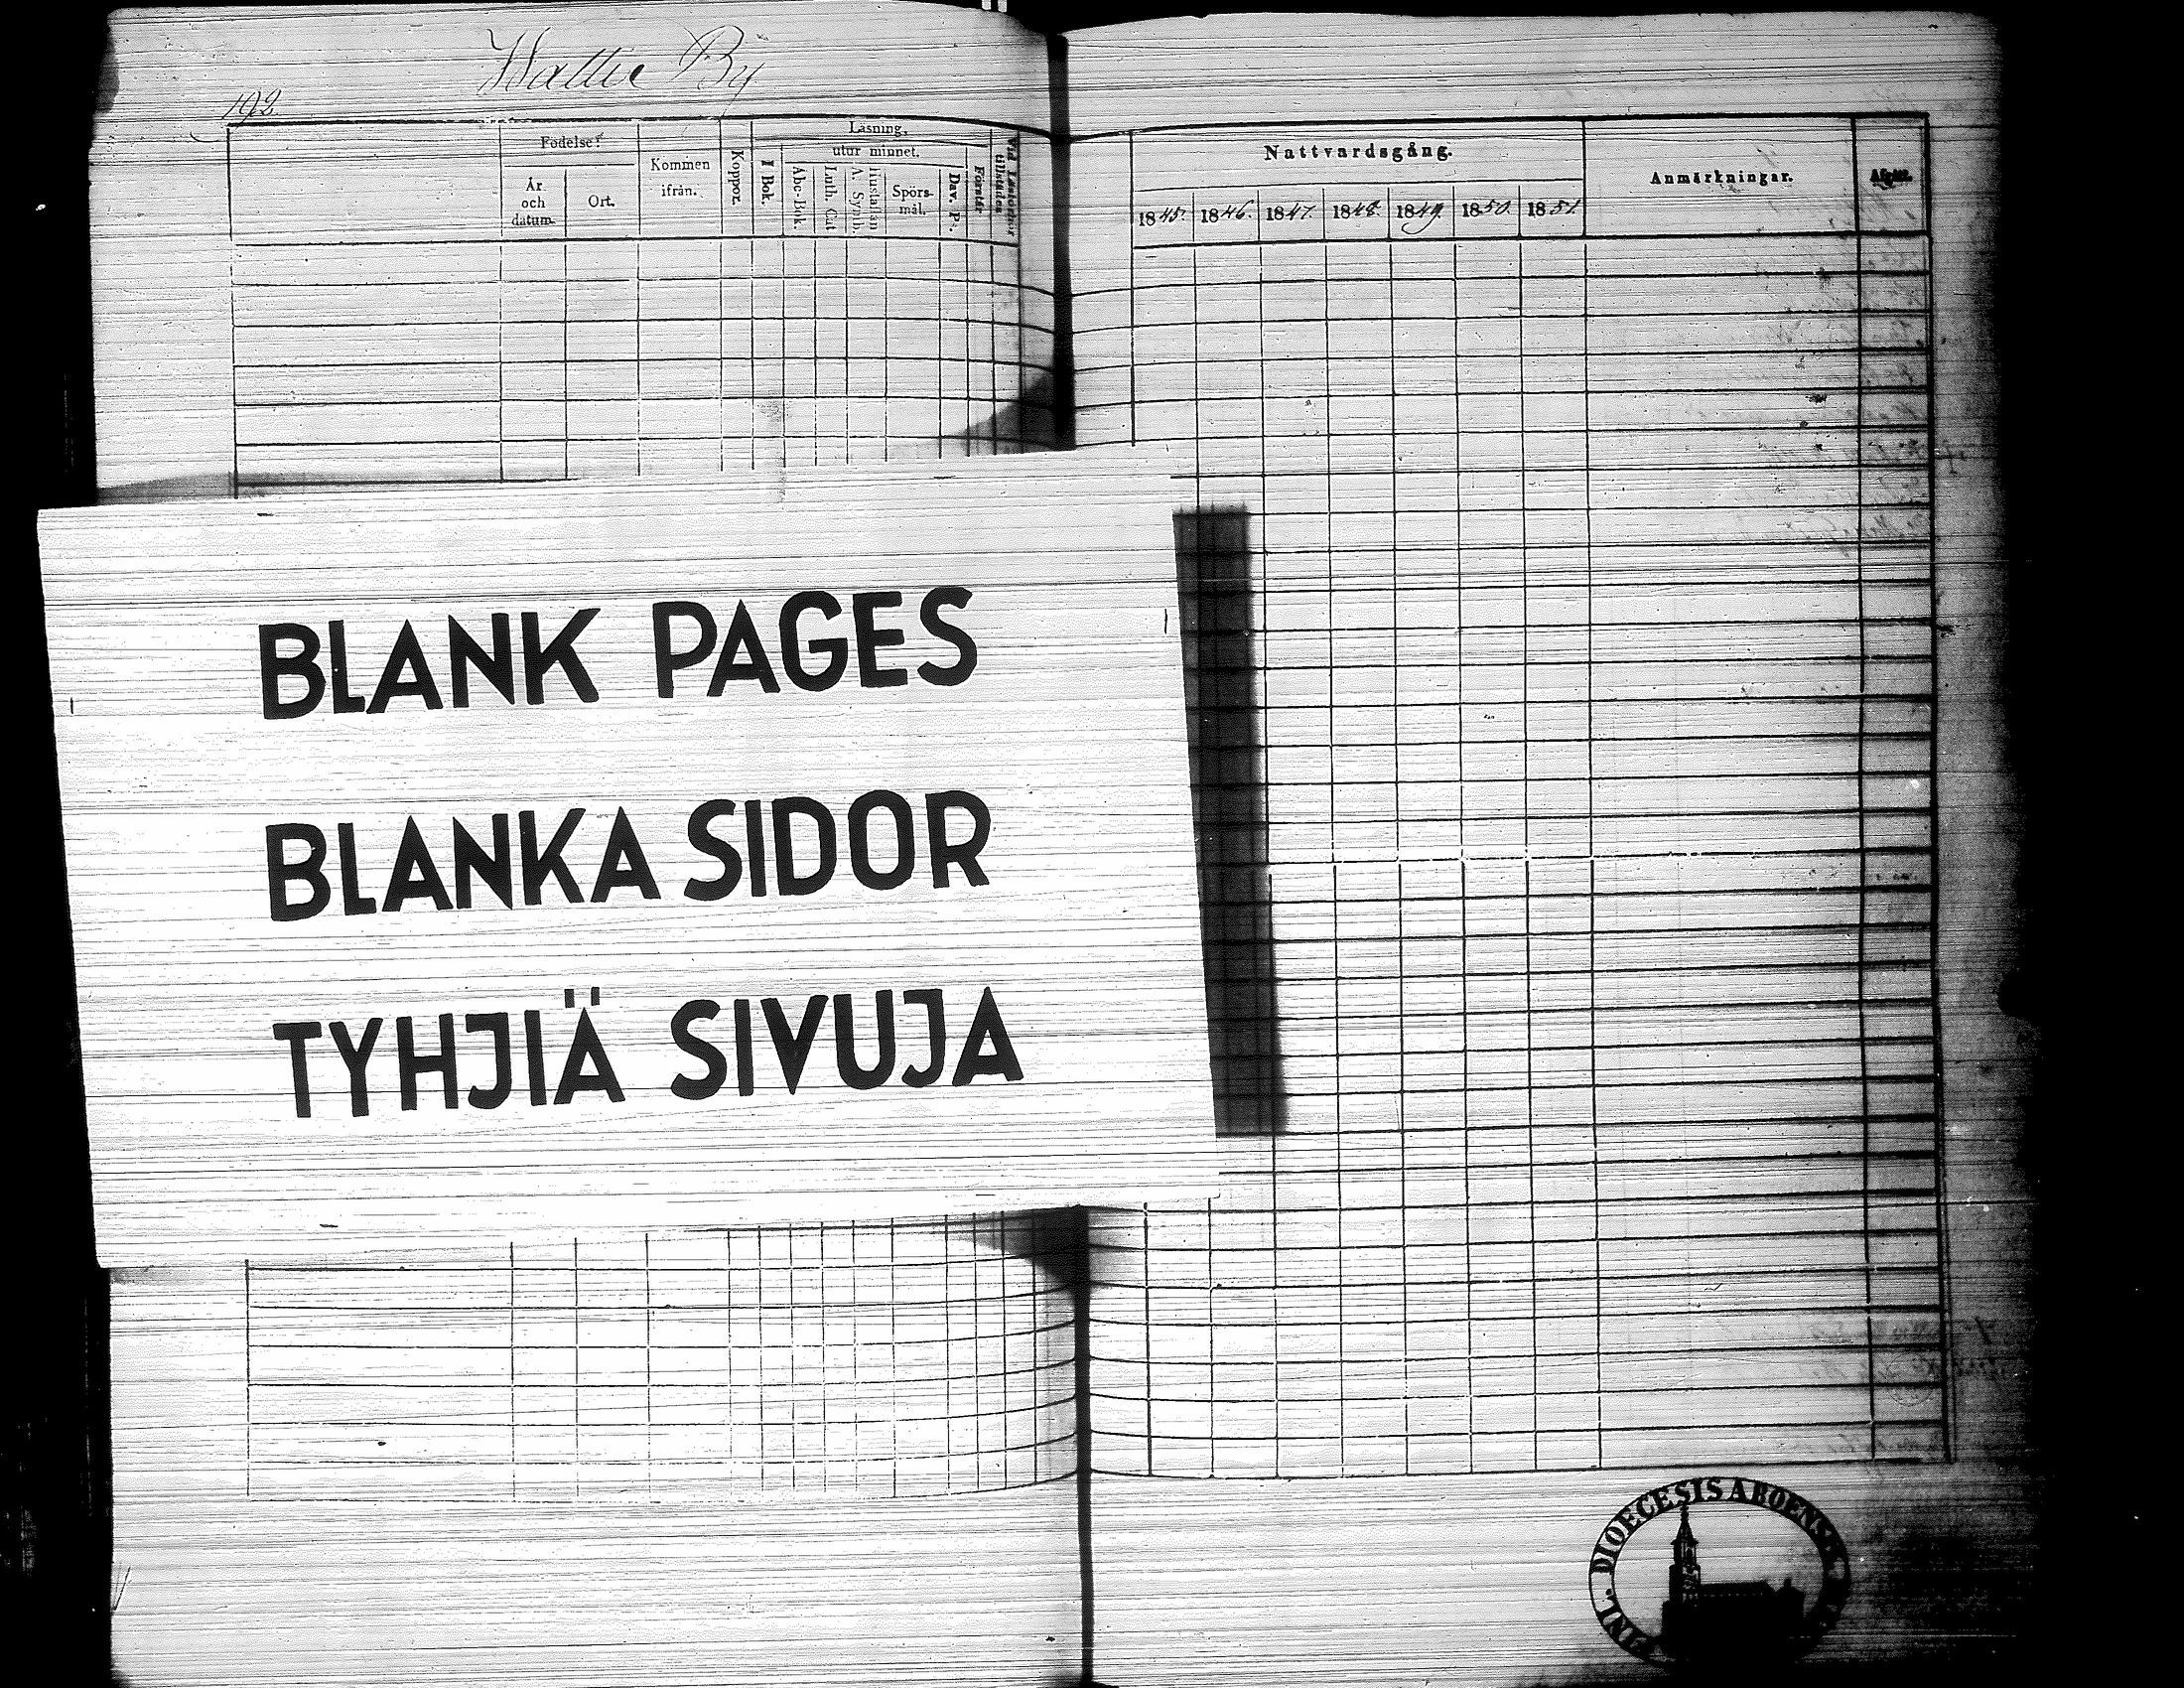 Wattu By
192
Födelse
År och datum.
Ort.
Kommen ifrån.
Koppor.
Läsning,
I Bok.
utur minnet.
Abc-Bok.
Luth. Cat
Hustaflan
A. Symb.
Spörs-
mål.
Dav. P.
Förstår
Vid Läseförhör
tillstädes
Nattvardsgång.
1845. 1846. 1847. 1848. 1849. 1850. 1851.
Anmärkningar.
BLANK PAGES
BLANKA SIDOR
TYHJIÄ SIVUJA
FINL. DIOECESIS ABOENSIS